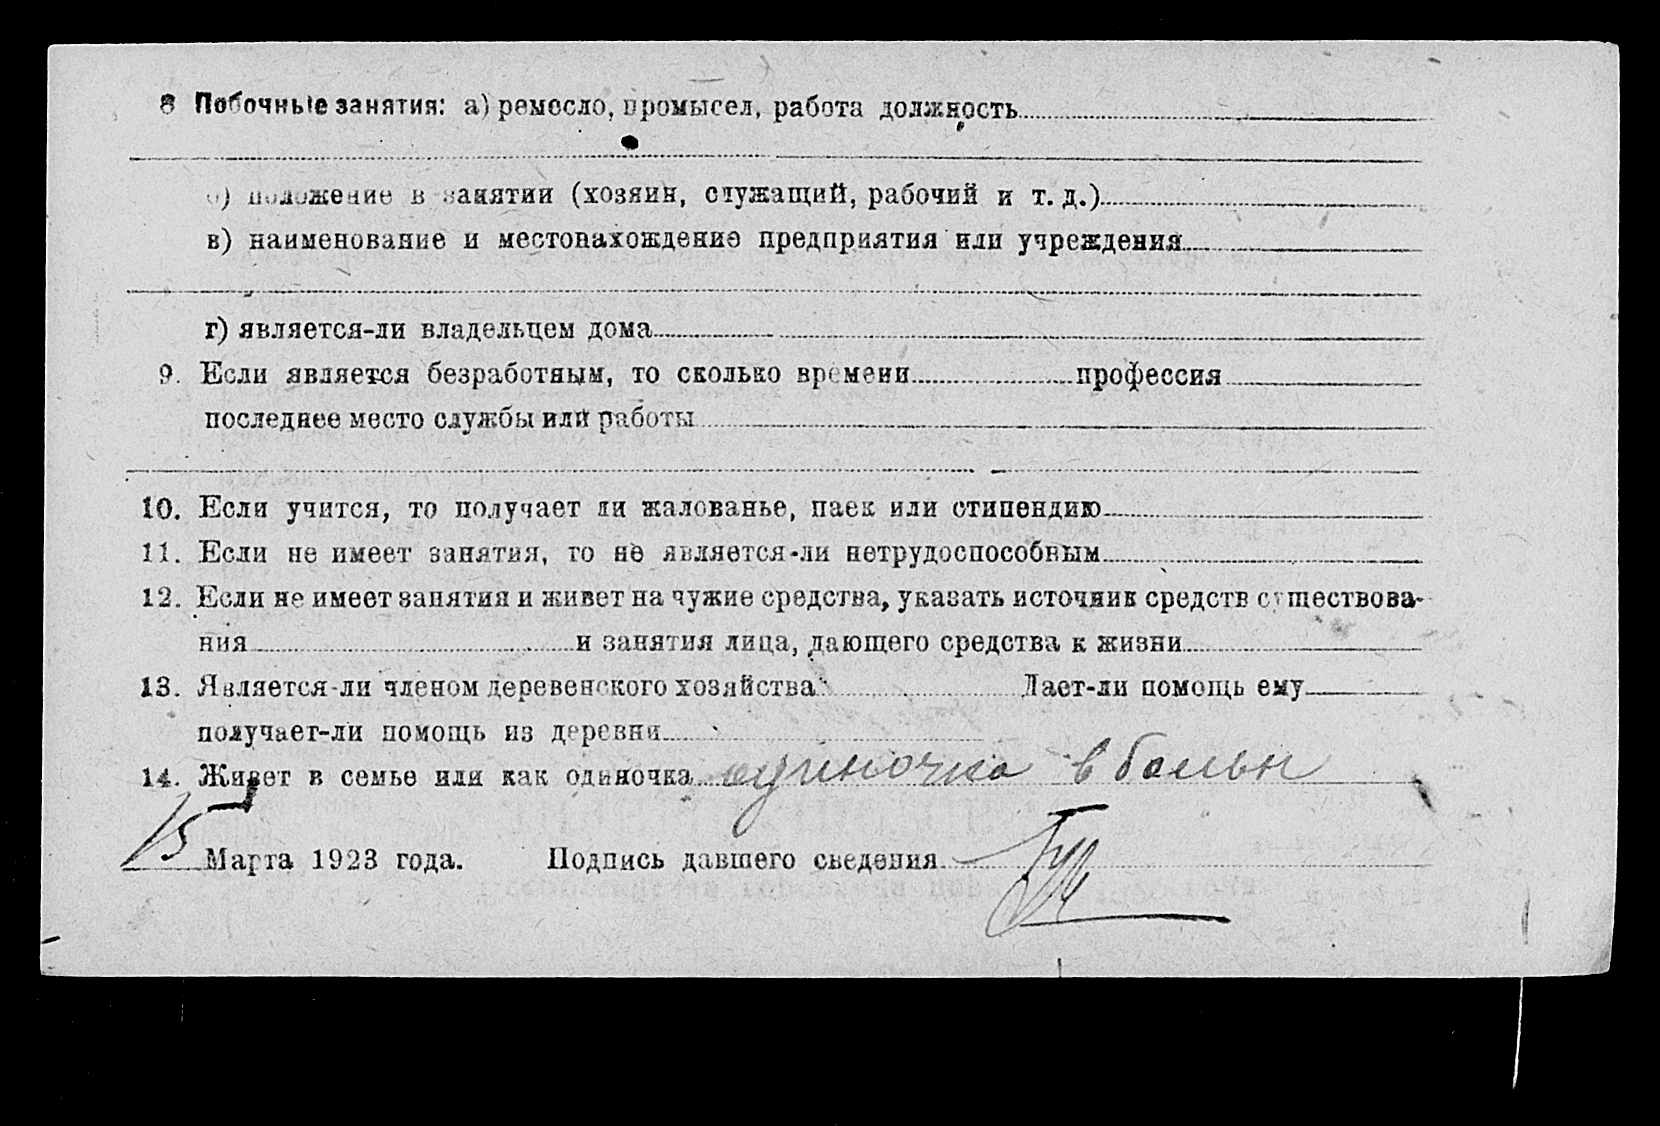 8 Побочные занятия: а) ремесло, промысел, работа должность
б) положение в занятии (хозяин, служащий, рабочий и т. д.)
в) наименование и местонахождение предприятия или учреждения
г) является-ли владельцем дома
9. Если является безработным, то сколько времени профессия
последнее место службы или работы
10. Если учится, то получает ли жалованье, паек или стипендию
11. Если не имеет занятия, то не является-ли нетрудоспособным
12. Если не имеет занятия и живет на чужие средства, указать источник средств существова-
ния и занятия лица, дающего средства к жизни
13. Является-ли членом деревенского хозяйства Дает-ли помощь ему
получает-ли помощь из деревни
14. Живет в семье или как одиночка одиночка в больн
15 Марта 1923 года. Подпись давшего сведения